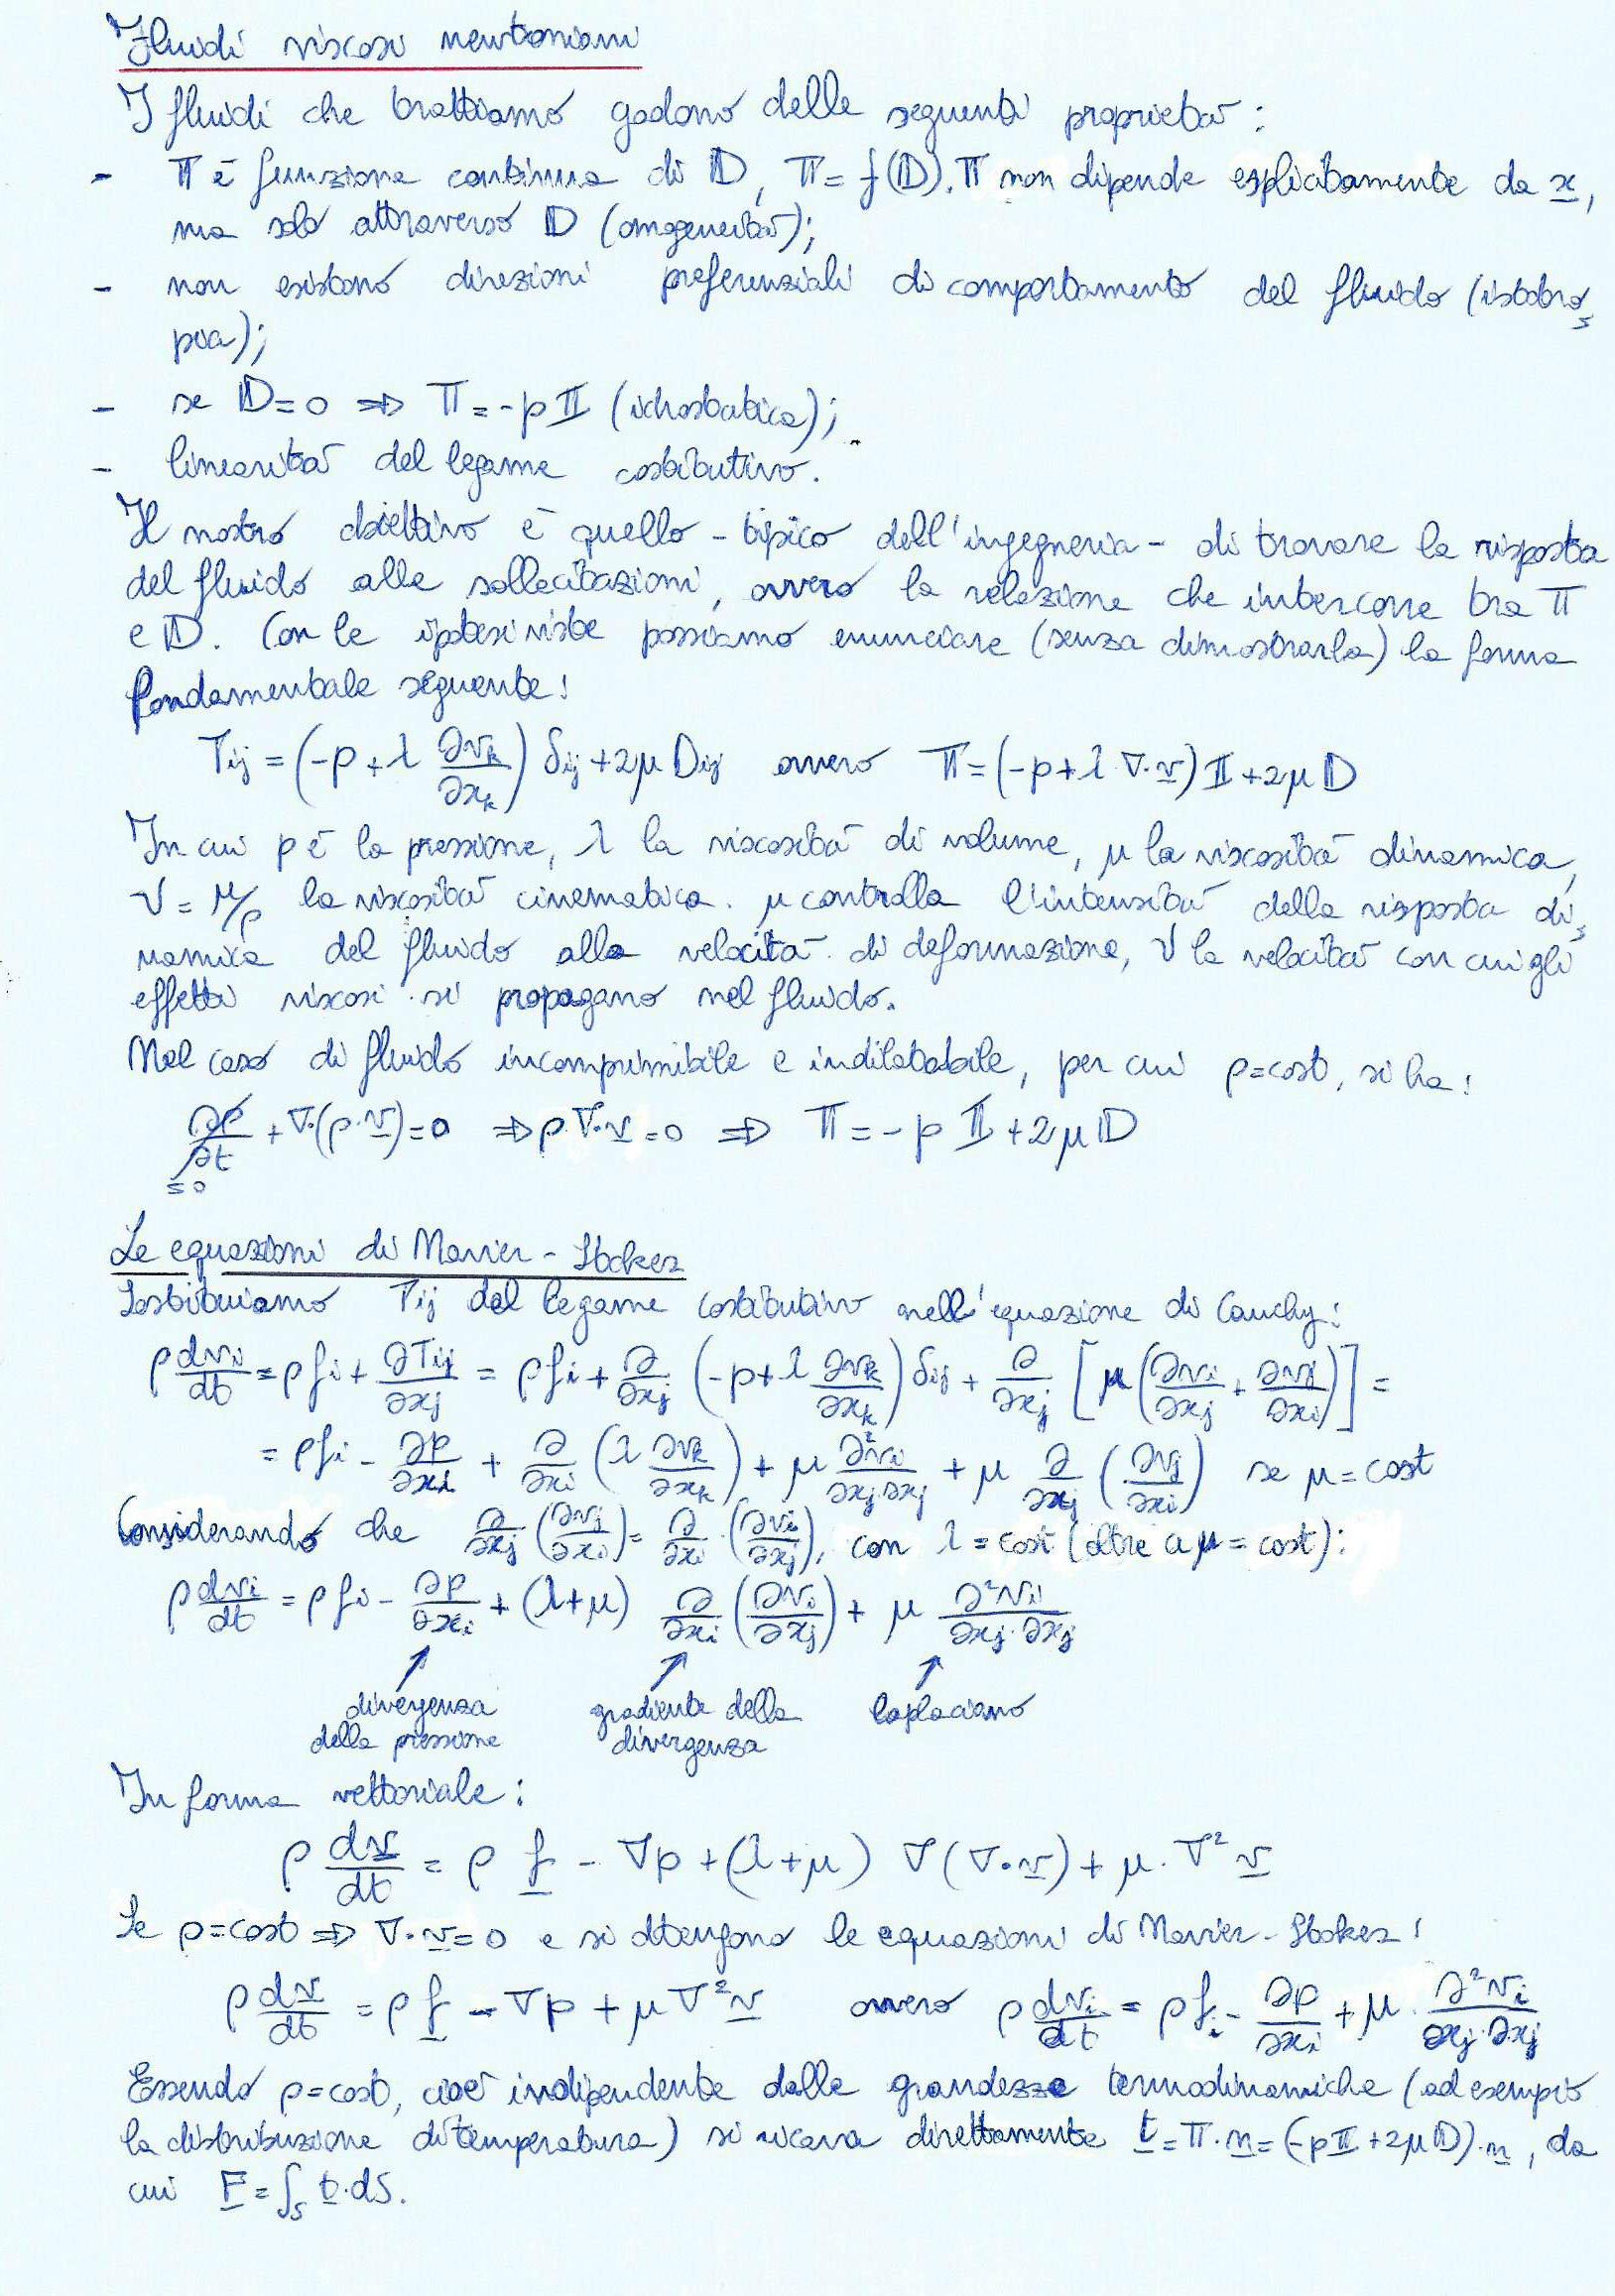 Fluidi viscosi newtoniani
I fluidi che trattiamo godono delle seguenti proprietà:
- 𝕋 è funzione continua di 𝔻, 𝕋 = f(𝔻). 𝕋 non dipende esplicitamente da x,
ma solo attraverso 𝔻 (omogeneità);
- non esistono direzioni preferenziali di comportamento del fluido (isotro
pia);
- se 𝔻=0 ⇒ 𝕋=-p𝕀 (idrostatica);
- linearità del legame costitutivo.
Il nostro obiettivo è quello - tipico dell'ingegneria - di trovare la risposta
del fluido alle sollecitazioni, ovvero la relazione che intercorre tra 𝕋
e 𝔻. Con le ipotesi viste possiamo enunciare (senza dimostrarla) la forma
fondamentale seguente:
Tij = (-p+λ ∂vk/∂xk) δij + 2μ Dij ovvero 𝕋=(-p+λ ∇·v)𝕀+2μ𝔻
In cui p è la pressione, λ la viscosità di volume, μ la viscosità dinamica,
ν = μ/ρ la viscosità cinematica. μ controlla l'intensità della risposta di
namica del fluido alla velocità di deformazione, ν la velocità con cui gli
effetti viscosi si propagano nel fluido.
Nel caso di fluido incomprimibile e indilatabile, per cui ρ=cost, si ha:
∂ρ/∂t + ∇·(ρ·v)=0 ⇒ ρ∇·v=0 ⇒ 𝕋=-p𝕀+2μ𝔻
=0
Le equazioni di Navier-Stokes
Sostituiamo Tij del legame costitutivo nell'equazione di Cauchy:
ρ dvi/dt = ρfi + ∂Tij/∂xj = ρfi + ∂/∂xj (-p+λ ∂vk/∂xk) δij + ∂/∂xj [μ(∂vi/∂xj + ∂vj/∂xi)] =
= ρfi - ∂p/∂xi + ∂/∂xi (λ ∂vk/∂xk) + μ ∂²vi/∂xj·∂xj + μ ∂/∂xj (∂vj/∂xi) se μ=cost
Considerando che ∂/∂xj (∂vj/∂xi) = ∂/∂xi·(∂vi/∂xj), con λ=cost (oltre a μ=cost):
ρ dvi/dt = ρfi - ∂p/∂xi + (λ+μ) ∂/∂xi (∂vi/∂xj) + μ ∂²vi/∂xj·∂xj
divergenza gradiente della laplaciano
della pressione divergenza
In forma vettoriale:
ρ dv/dt = ρ f - ∇p + (λ+μ) ∇(∇·v) + μ·∇²v
Se ρ=cost ⇒ ∇·v=0 e si ottengono le equazioni di Navier-Stokes:
ρ dv/dt = ρf - ∇p + μ∇²v ovvero ρ dvi/dt = ρfi - ∂p/∂xi + μ·∂²vi/∂xj·∂xj
Essendo ρ=cost, cioè indipendente dalle grandezze termodinamiche (ad esempio
la distribuzione di temperatura) si ricava direttamente t=𝕋·n=(-p𝕀+2μ𝔻)·n, da
cui F=∫S t·dS.